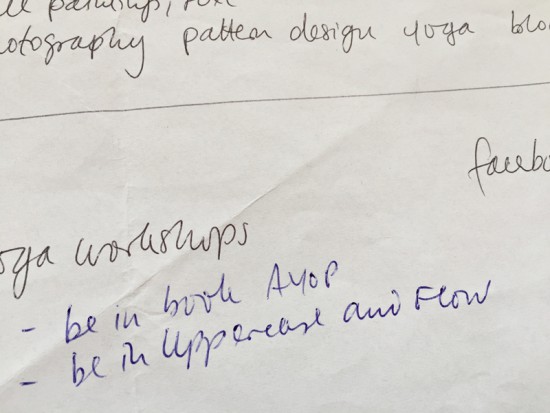 photography pattern design yoga blo
facebo
yoga workshops
- be in book AYOP
- be in Uppercase and Flow